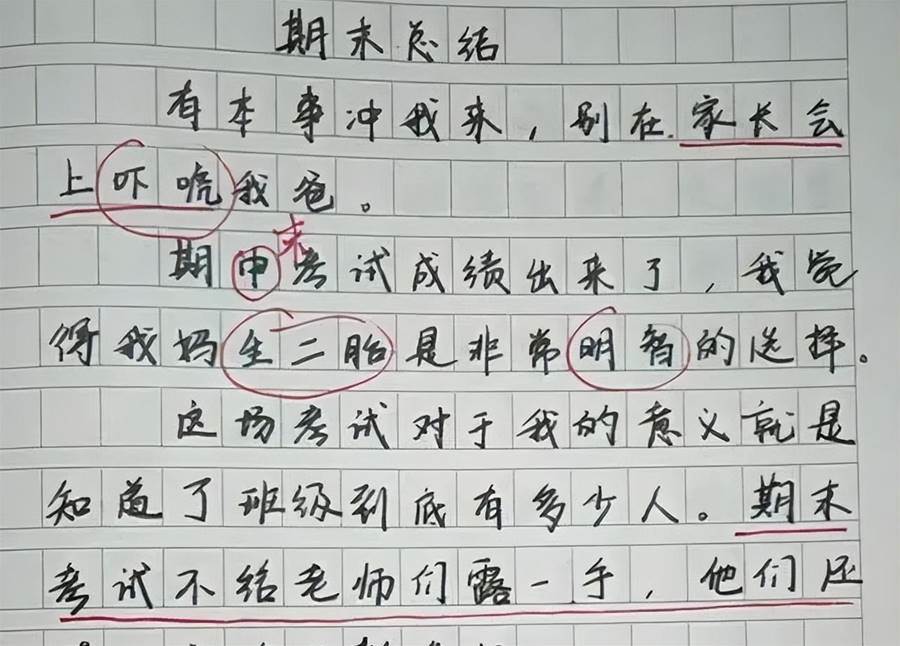 期末总结
有本事冲我来，别在家长会
上吓唬我爸。
末
期中考试成绩出来了，我觉
得我妈生二胎是非常明智的选择。
这场考试对于我的意义就是
知道了班级到底有多少人。期末
考试不给老师们露一手，他们还